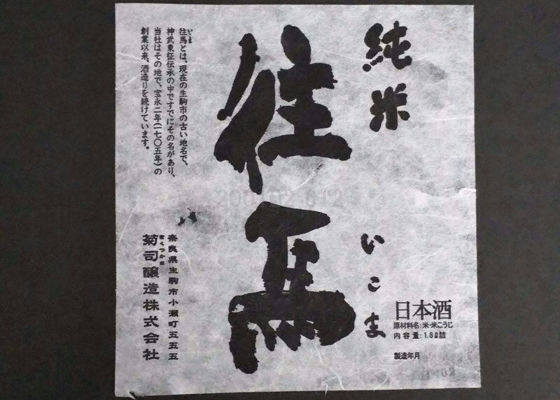 純米
往馬
いこま
往馬とは、現在の生駒市の古い地名で、
神武東征伝承の中ですでにその名があり、
当社はその地で、宝永二年(一七〇五年)の
創業以来、酒造りを続けています。
奈良県生駒市小瀬町五五五
菊司醸造株式会社
日本酒
原材料名:米・米こうじ
内容量:1.8ℓ詰
製造年月